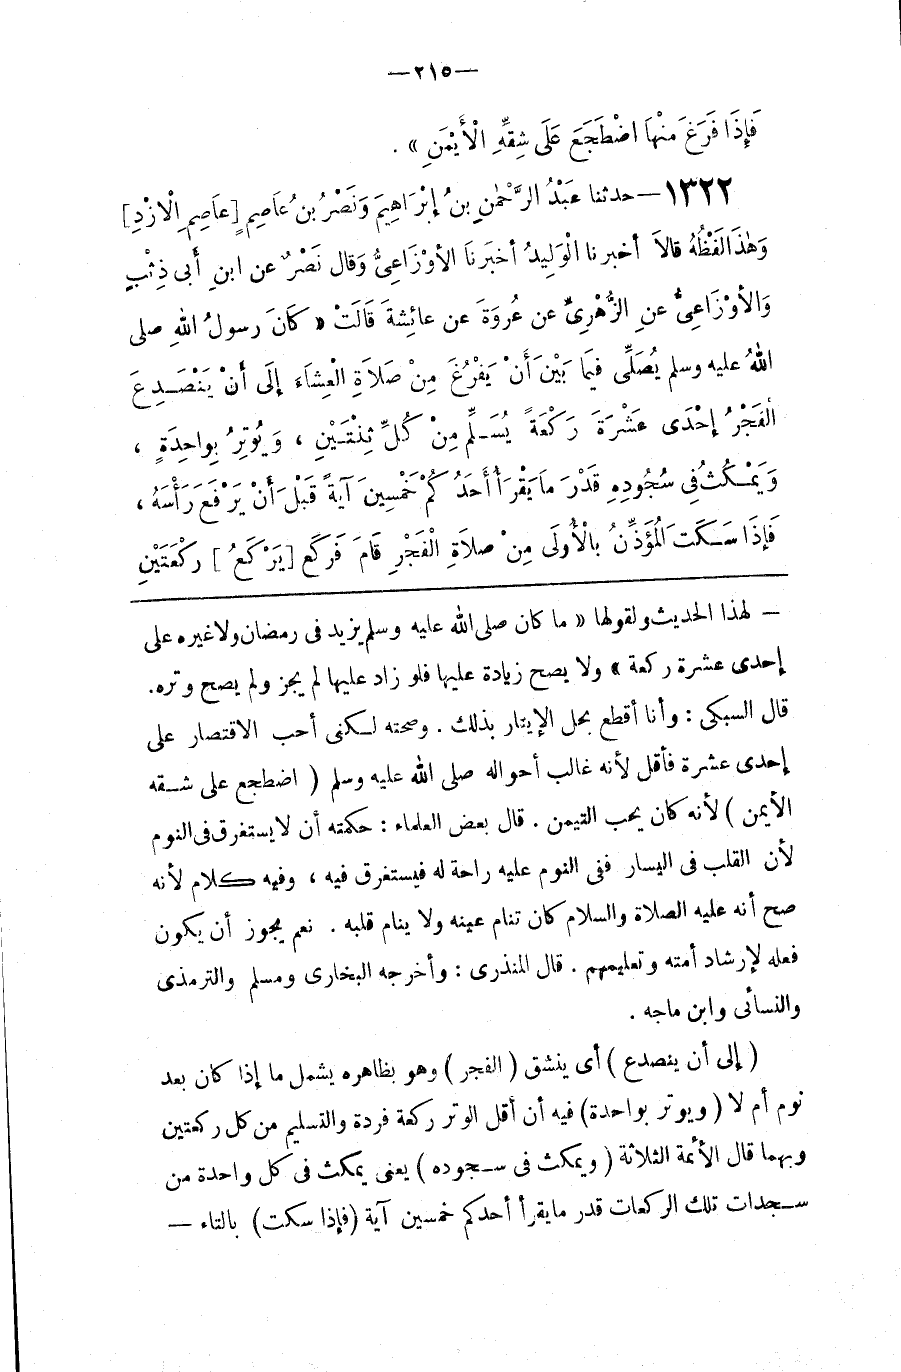 —٢١٥—
فَإِذَا فَرَغَ مِنْهَا اضْطَجَعَ عَلَى شِقِّهِ الْأَيْمَنِ » .
١٣٢٢ — حدثنا عَبْدُ الرَّحْمٰنِ بنُ إِبْرَاهِيمَ وَنَصْرُ بنُ عَاصِمٍ [عَاصِمِ الْازْدِ]
وَهٰذَا لَفْظُهُ قالاَ أخبرنا الْوَلِيدُ أخبَرنَا الأوْزَاعِىُّ وَقال نَصْرٌ عن ابنِ أَبى ذِئْبٍ
وَالأوْزَاعِىُّ عنِ الزُّهْرِىِّ عن عُروَةَ عن عائِشةَ قَالَتْ « كَانَ رسولُ اللهِ صلى
اللهُ عليه وسلم يُصَلِّى فِيمَا بَيْنَ أَنْ يَفْرُغَ مِنْ صَلاَةِ الْعِشَاءَ إِلَى أَنْ يَنْصَدِعَ
الْفَجْرُ إِحْدَى عَشْرَةَ رَكْعَةً يُسَلِّم مِنْ كُلِّ ثِنْتَيْنِ ، وَيُوتِرُ بِواحِدَةٍ ،
وَيَمْكُثُ فِى سُجُودِهِ قَدْرَ مَا يَقْرَأُ أَحَدُكُمْ خَمْسِينَ آيَةً قَبْلَ أَنْ يَرْفَعَ رَأْسَهُ ،
فَإِذَا سَكَتَ الْمُؤَذِّنُ بالْأُولَى مِنْ صلاَةِ الْفَجْرِ قَامَ فَرَكَع [يَرْكَعُ] رَكْعَتَيْنِ
— لهذا الحديث ولقولها « ما كان صلى الله عليه وسلم يزيد فى رمضان ولاغيره على
إحدى عشرة ركعة » ولا يصح زيادة عليها فلو زاد عليها لم يجز ولم يصح وتره.
قال السبكى : وأنا أقطع بحل الإيتار بذلك . وصحته لكنى أحب الاقتصار على
إحدى عشرة فأقل لأنه غالب أحواله صلى الله عليه وسلم ( اضطجع على شقه
الأيمن ) لأنه كان يحب التيمن . قال بعض العلماء : حكمته أن لا يستغرق فى النوم
لأن القلب فى اليسار ففى النوم عليه راحة له فيستغرق فيه ، وفيه كلام لأنه
صح أنه عليه الصلاة والسلام كان تنام عينه ولا ينام قلبه . نعم يجوز أن يكون
فعله لإرشاد أمته وتعليمهم . قال المنذرى : وأخرجه البخارى ومسلم والترمذى
والنسائى وابن ماجه .
( إلى أن ينصدع ) أى ينشق ( الفجر ) وهو بظاهره يشمل ما إذا كان بعد
نوم أم لا ( ويوتر بواحدة) فيه أن أقل الوتر ركعة فردة والتسليم من كل ركعتين
وبهما قال الأئمة الثلاثة ( ويمكث فى سجوده ) يعنى يمكث فى كل واحدة من
سجدات تلك الركعات قدر ما يقرأ أحدكم خمسين آية (فإذا سكت) بالتاء —